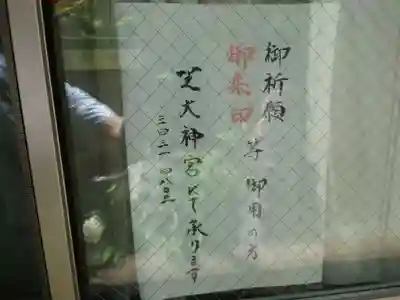 御祈願
御朱印 等 御用の方
芝大神宮にて承ります
三四三一-四八〇二